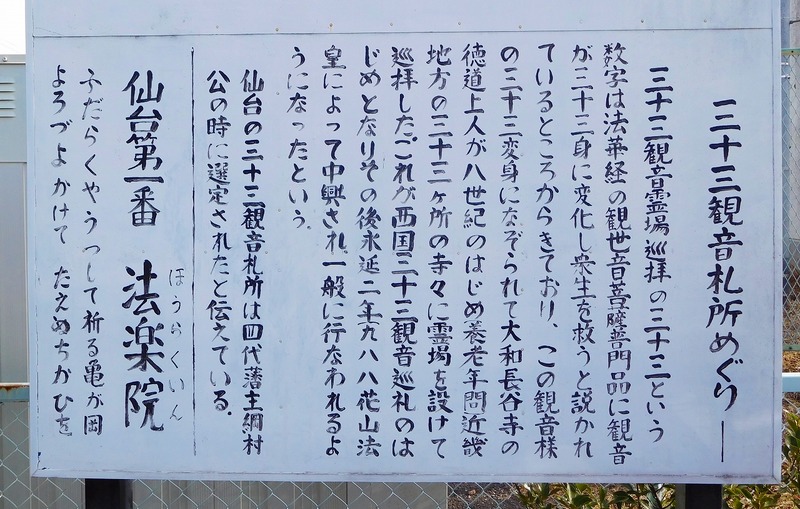 三十三観音札所めぐり―
三十三観音霊場巡拝の三十三という
数字は法華経の観世音菩薩普門品に観音
が三十三身に変化し衆生を救うと説かれ
ているところからきており、この観音様
の三十三変身になぞらられて大和長谷寺の
徳道上人が八世紀のはじめ養老年間近畿
地方の三十三ヶ所の寺々に霊場を設けて
巡拝したこれが西国三十三観音巡礼のは
じめとなりその後永延二年九八八花山法
皇によって中興され、一般に行なわれるよ
うになったという。
仙台の三十三観音札所は四代藩主綱村
公の時に選定されたと伝えている。
仙台第一番 法楽院
ほうらくいん
ふだらくやうつして祈る亀が岡
よろづよかけて たえぬちかひを